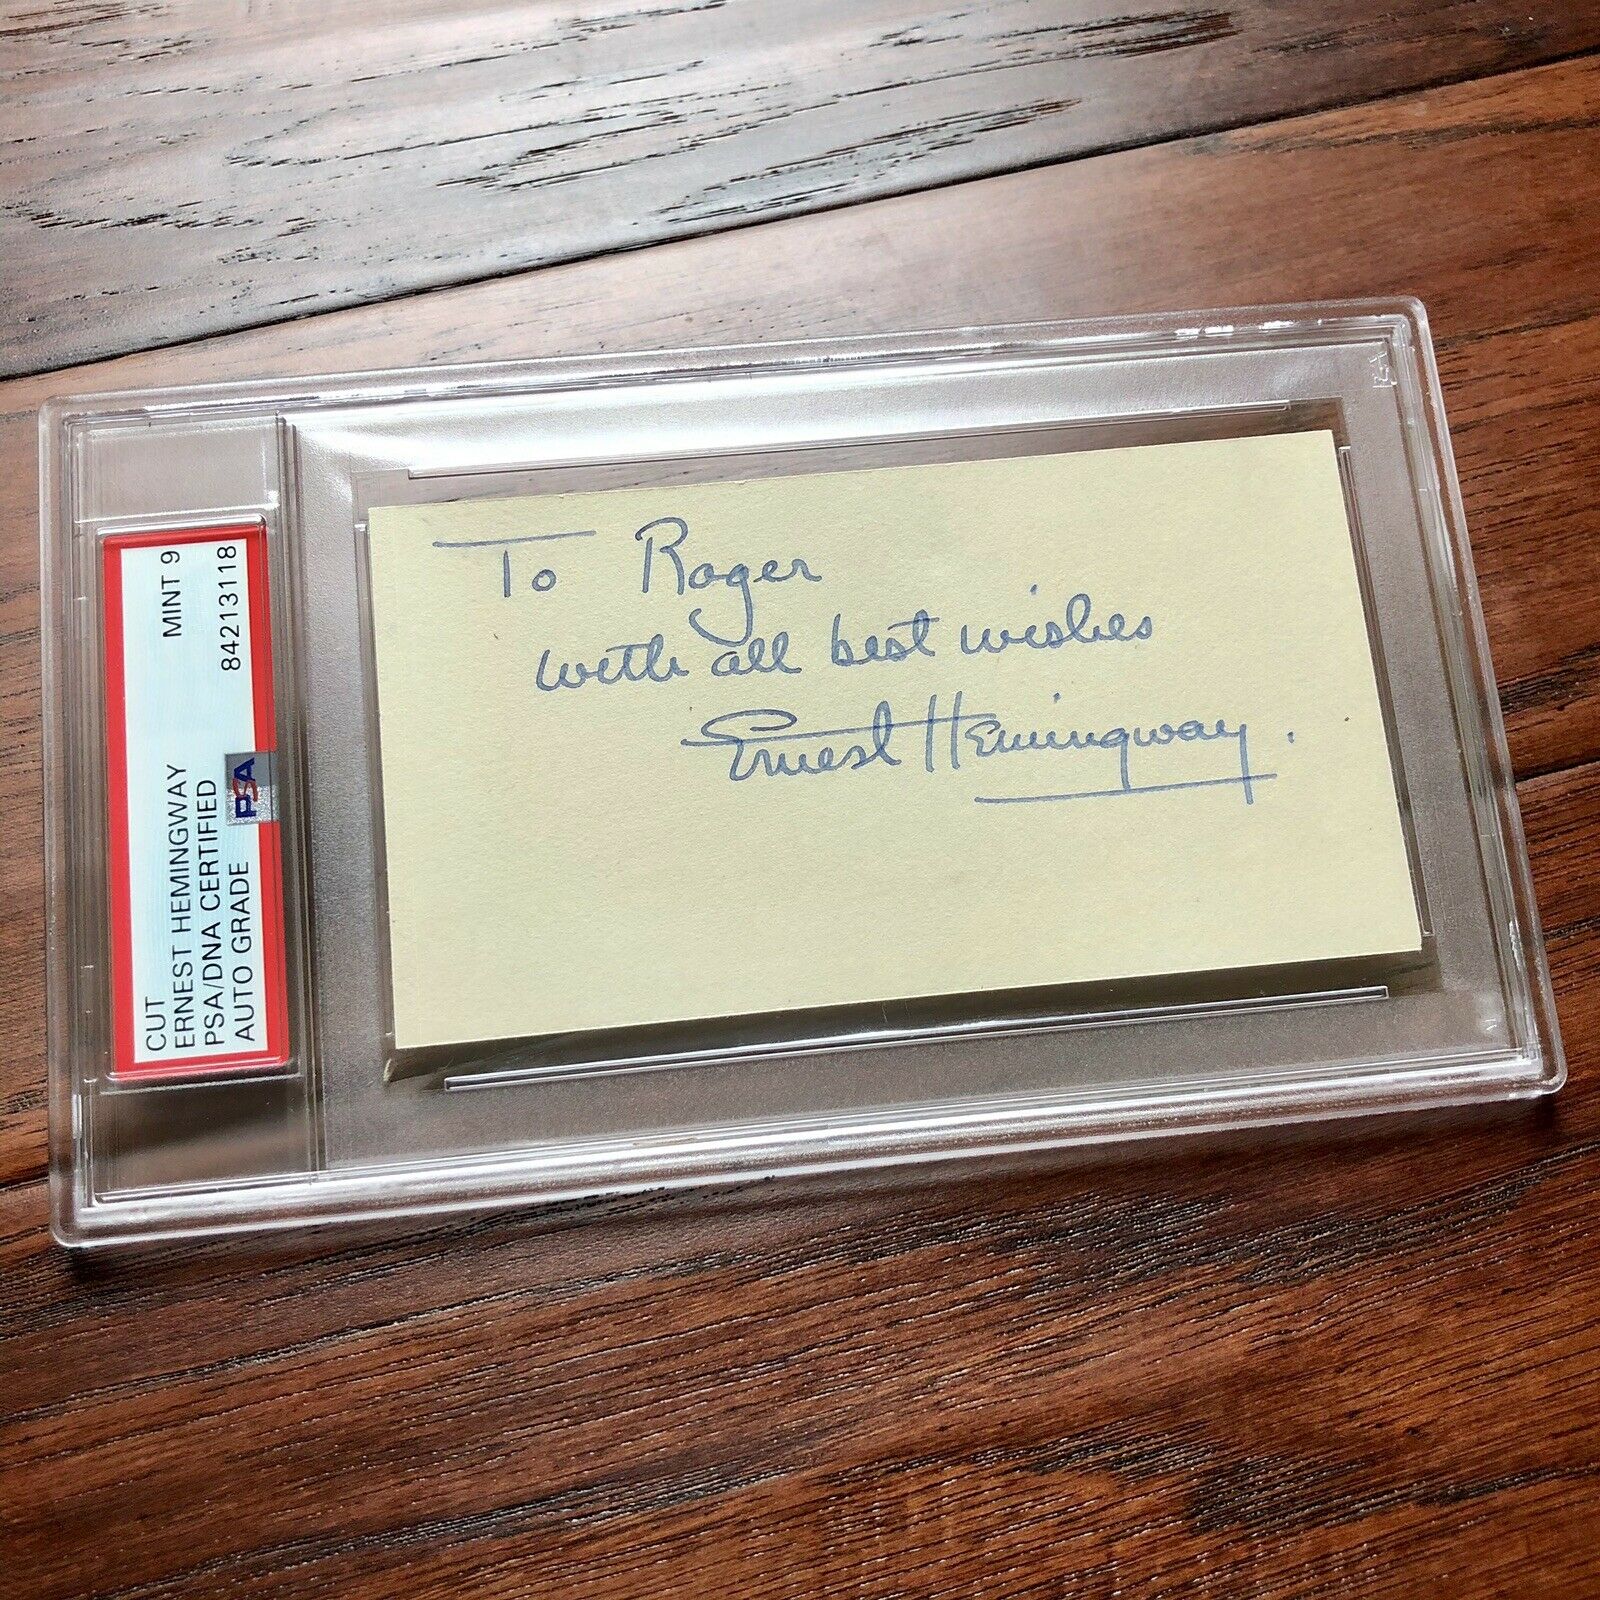 CUT
ERNEST HEMINGWAY
PSA/DNA CERTIFIED
AUTO GRADE
MINT 9
84213118
PSA
To Roger
with all best wishes
Ernest Hemingway.